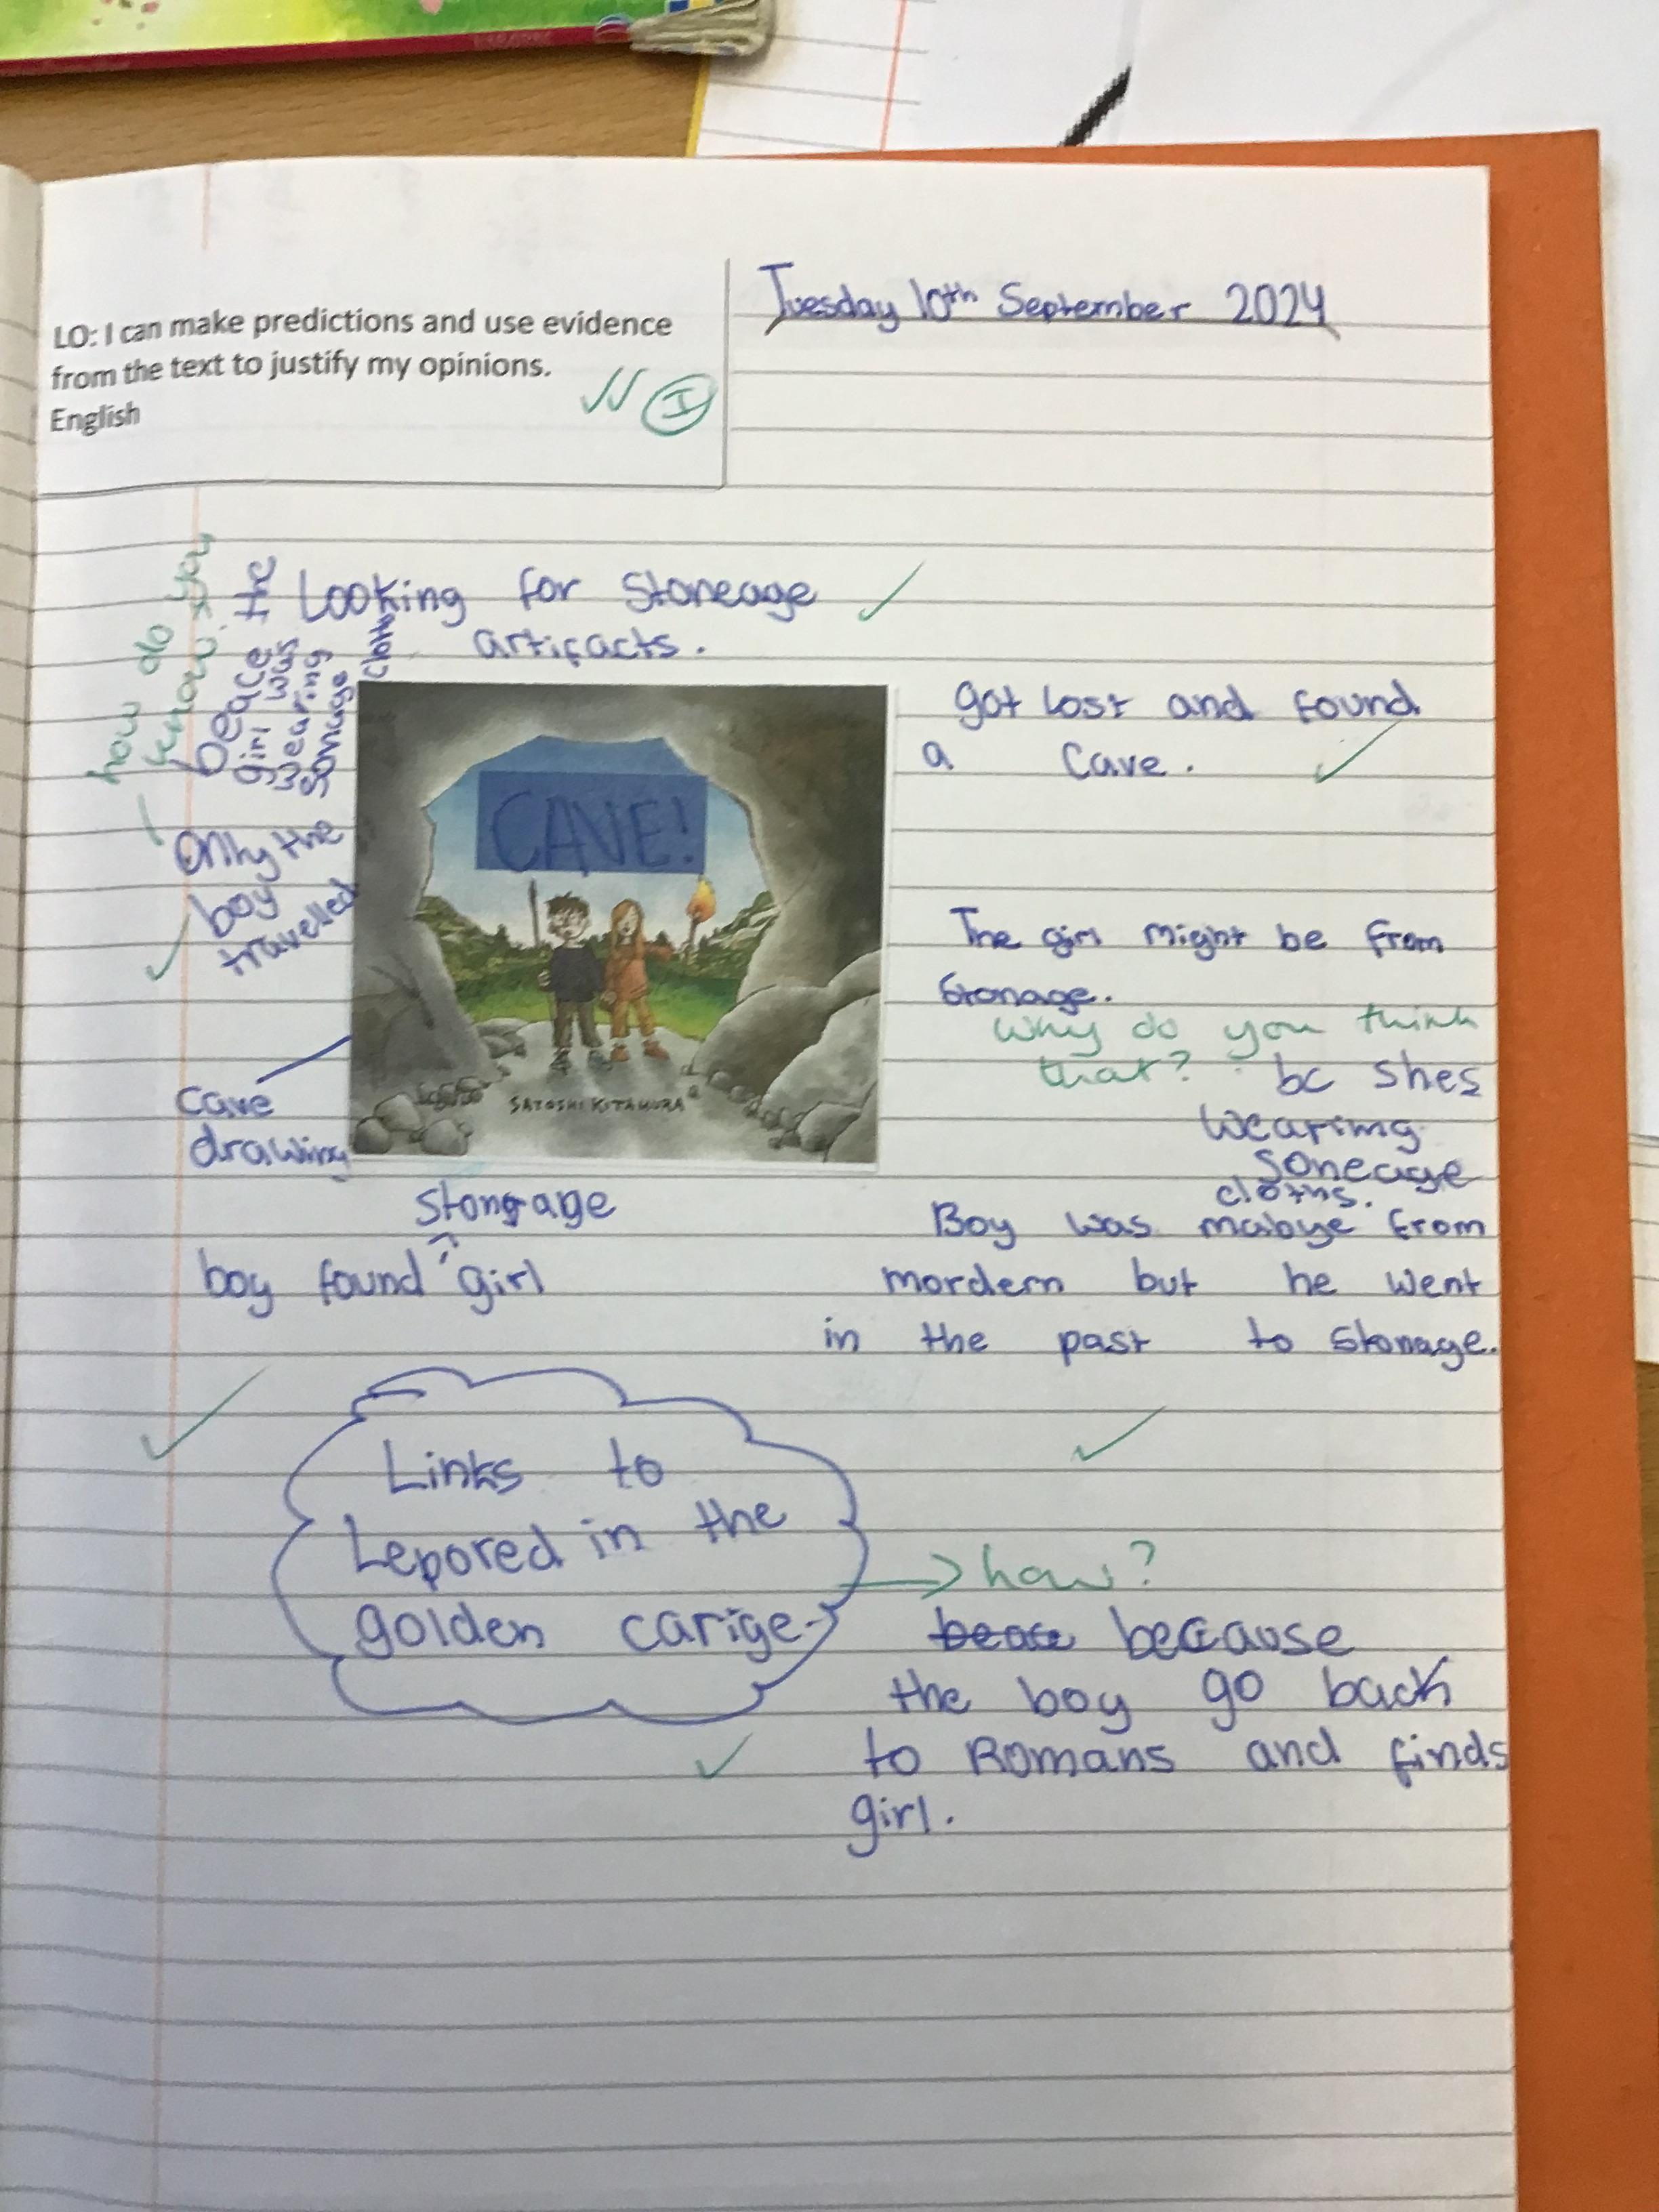 LO: I can make predictions and use evidence
from the text to justify my opinions.
English
I
Tuesday 10th September 2024
how do you
know?
beace the
girl was
wearing
sonage
cloths
Looking for Stoneage
artifacts.
got lost and found
a cave.
Only the
boy
travelled
CAVE!
SATOSHI KITAMURA
The girl might be from
Stonage.
Why do you think
that?
bc shes
wearing
soneage
cloths.
cave
drawing
stoneage
boy found girl
Boy was mabye from
mordern but he went
in the past to Stonage.
Links to
Lepored in the
golden carige
how?
because
the boy go back
to Romans and finds
girl.